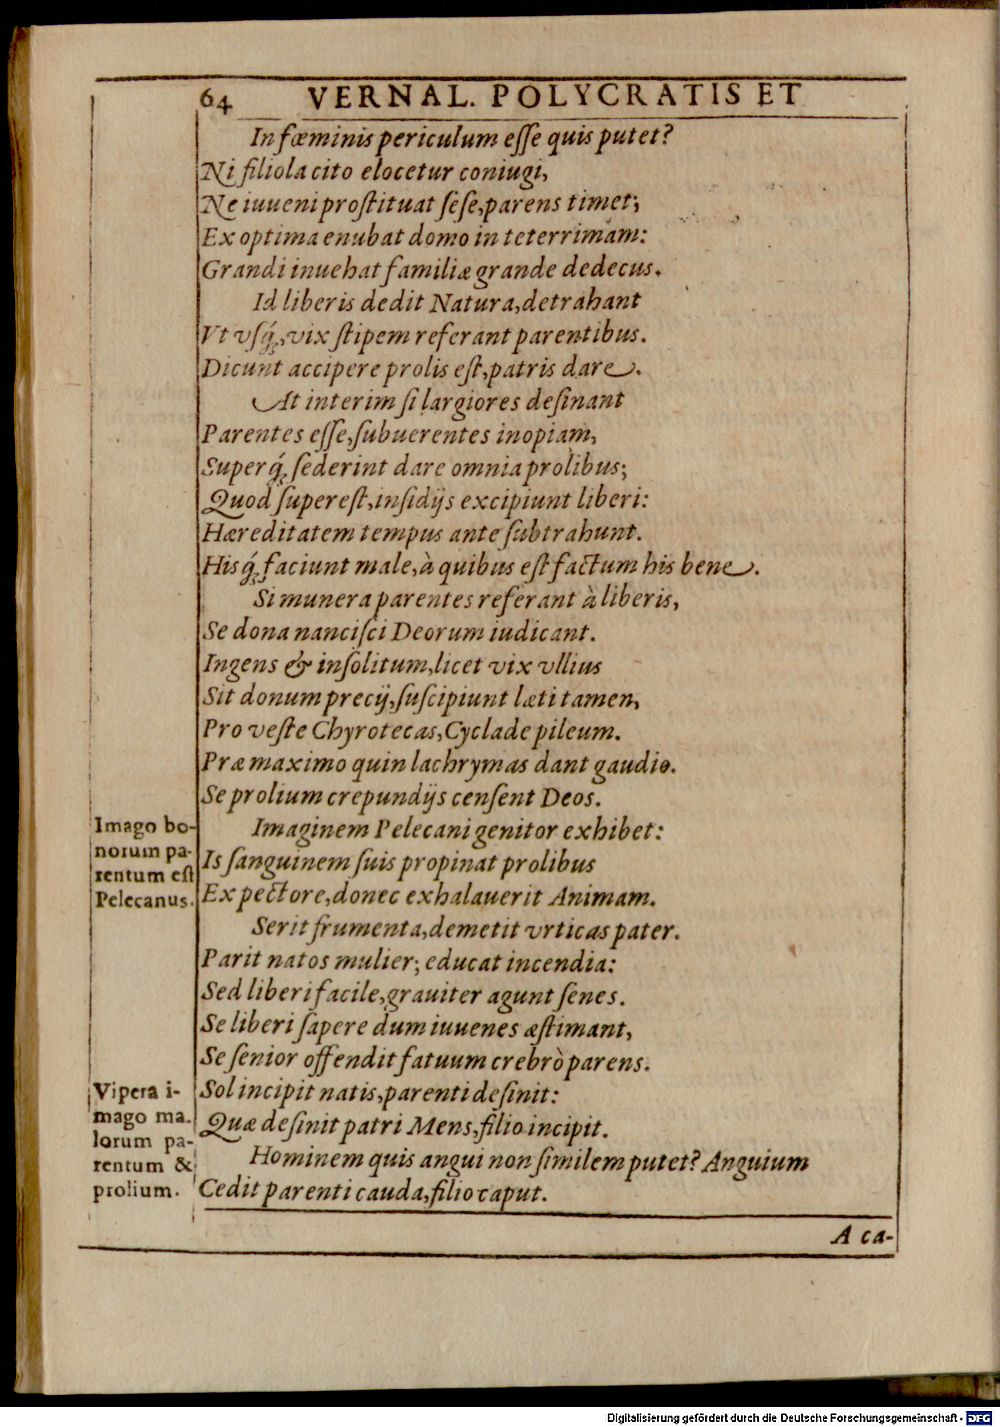 64 VERNAL. POLYCRATIS ET
In fœminis periculum eſſe quis putet?
Ni filiola cito elocetur coniugi,
Ne iuueni proſtituat ſeſe, parens timet;
Ex optima enubat domo in teterrimam:
Grandi inuehat familiæ grande dedecus.
Id liberis dedit Natura, detrahant
Vt vſq́;, vix ſtipem referant parentibus.
Dicunt accipere prolis eſt, patris dare.
At interim ſi largiores deſinant
Parentes eſſe, ſubuerentes inopiam,
Superq́; ſederint dare omnia prolibus;
Quod ſupereſt, inſidijs excipiunt liberi:
Hæreditatem tempus ante ſubtrahunt.
Hisq́; faciunt male, à quibus eſt factum his bene.
Si munera parentes referant à liberis,
Se dona nanciſci Deorum iudicant.
Ingens & inſolitum, licet vix vllius
Sit donum precij, ſuſcipiunt læti tamen,
Pro veſte Chyrotecas, Cyclade pileum.
Præ maximo quin lachrymas dant gaudio.
Se prolium crepundijs cenſent Deos.
Imago bo-
norum pa-
rentum eſt
Pelecanus.
Imaginem Pelecani genitor exhibet:
Is ſanguinem ſuis propinat prolibus
Ex pectore, donec exhalauerit Animam.
Serit frumenta, demetit vrticas pater.
Parit natos mulier; educat incendia:
Sed liberi facile, grauiter agunt ſenes.
Se liberi ſapere dum iuuenes æſtimant,
Se ſenior offendit fatuum crebrò parens.
Vipera i-
mago ma-
lorum pa-
rentum &
prolium.
Sol incipit natis, parenti deſinit:
Quæ deſinit patri Mens, filio incipit.
Hominem quis angui non ſimilem putet? Anguium
Cedit parenti cauda, filio caput.
A ca-
Digitalisierung gefördert durch die Deutsche Forschungsgemeinschaft - DFG